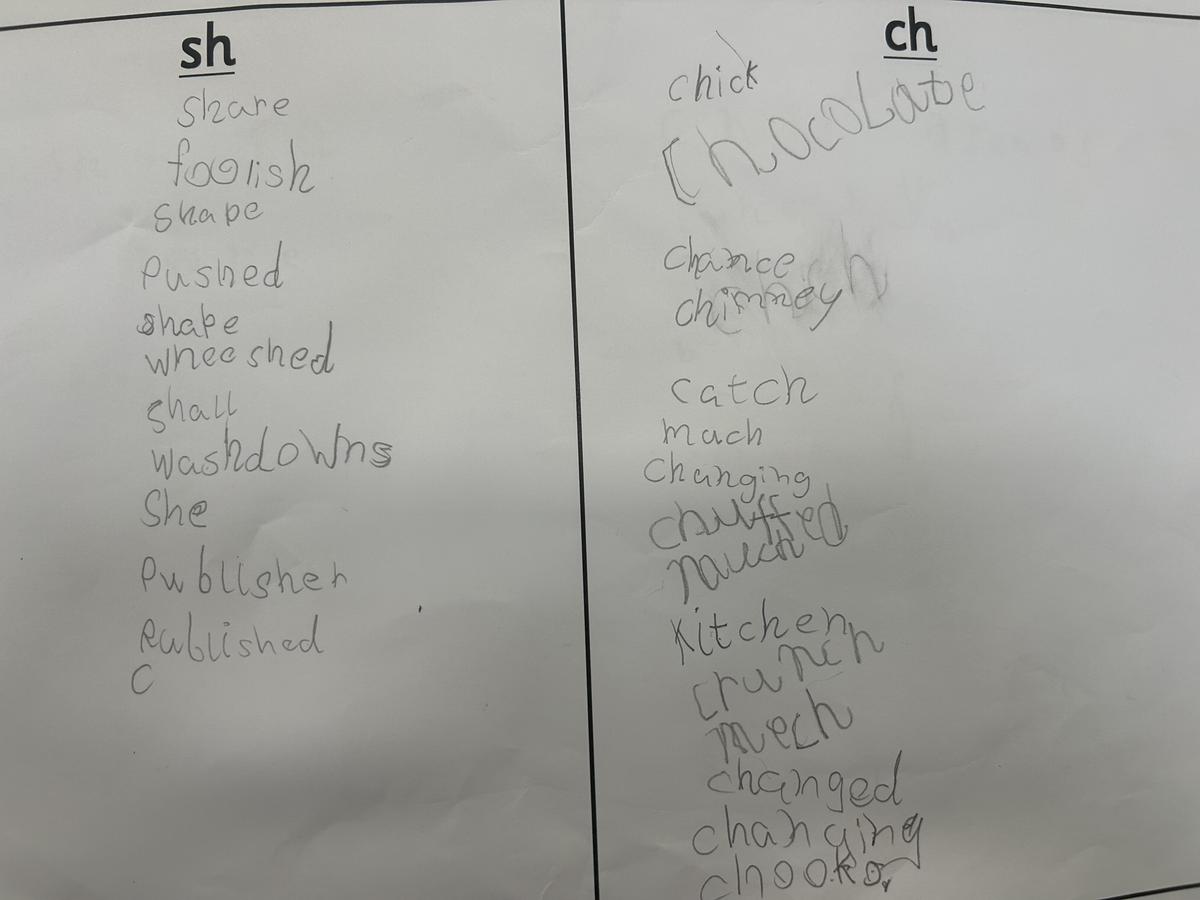 sh
share
foolish
shape
Pushed
shape
wheeshed
shall
washdowns
She
Publisher
Published
C
ch
chick
ChocoLate
chance
chimney
catch
much
changing
chuffed
kitchen
crunch
mech
changed
changing